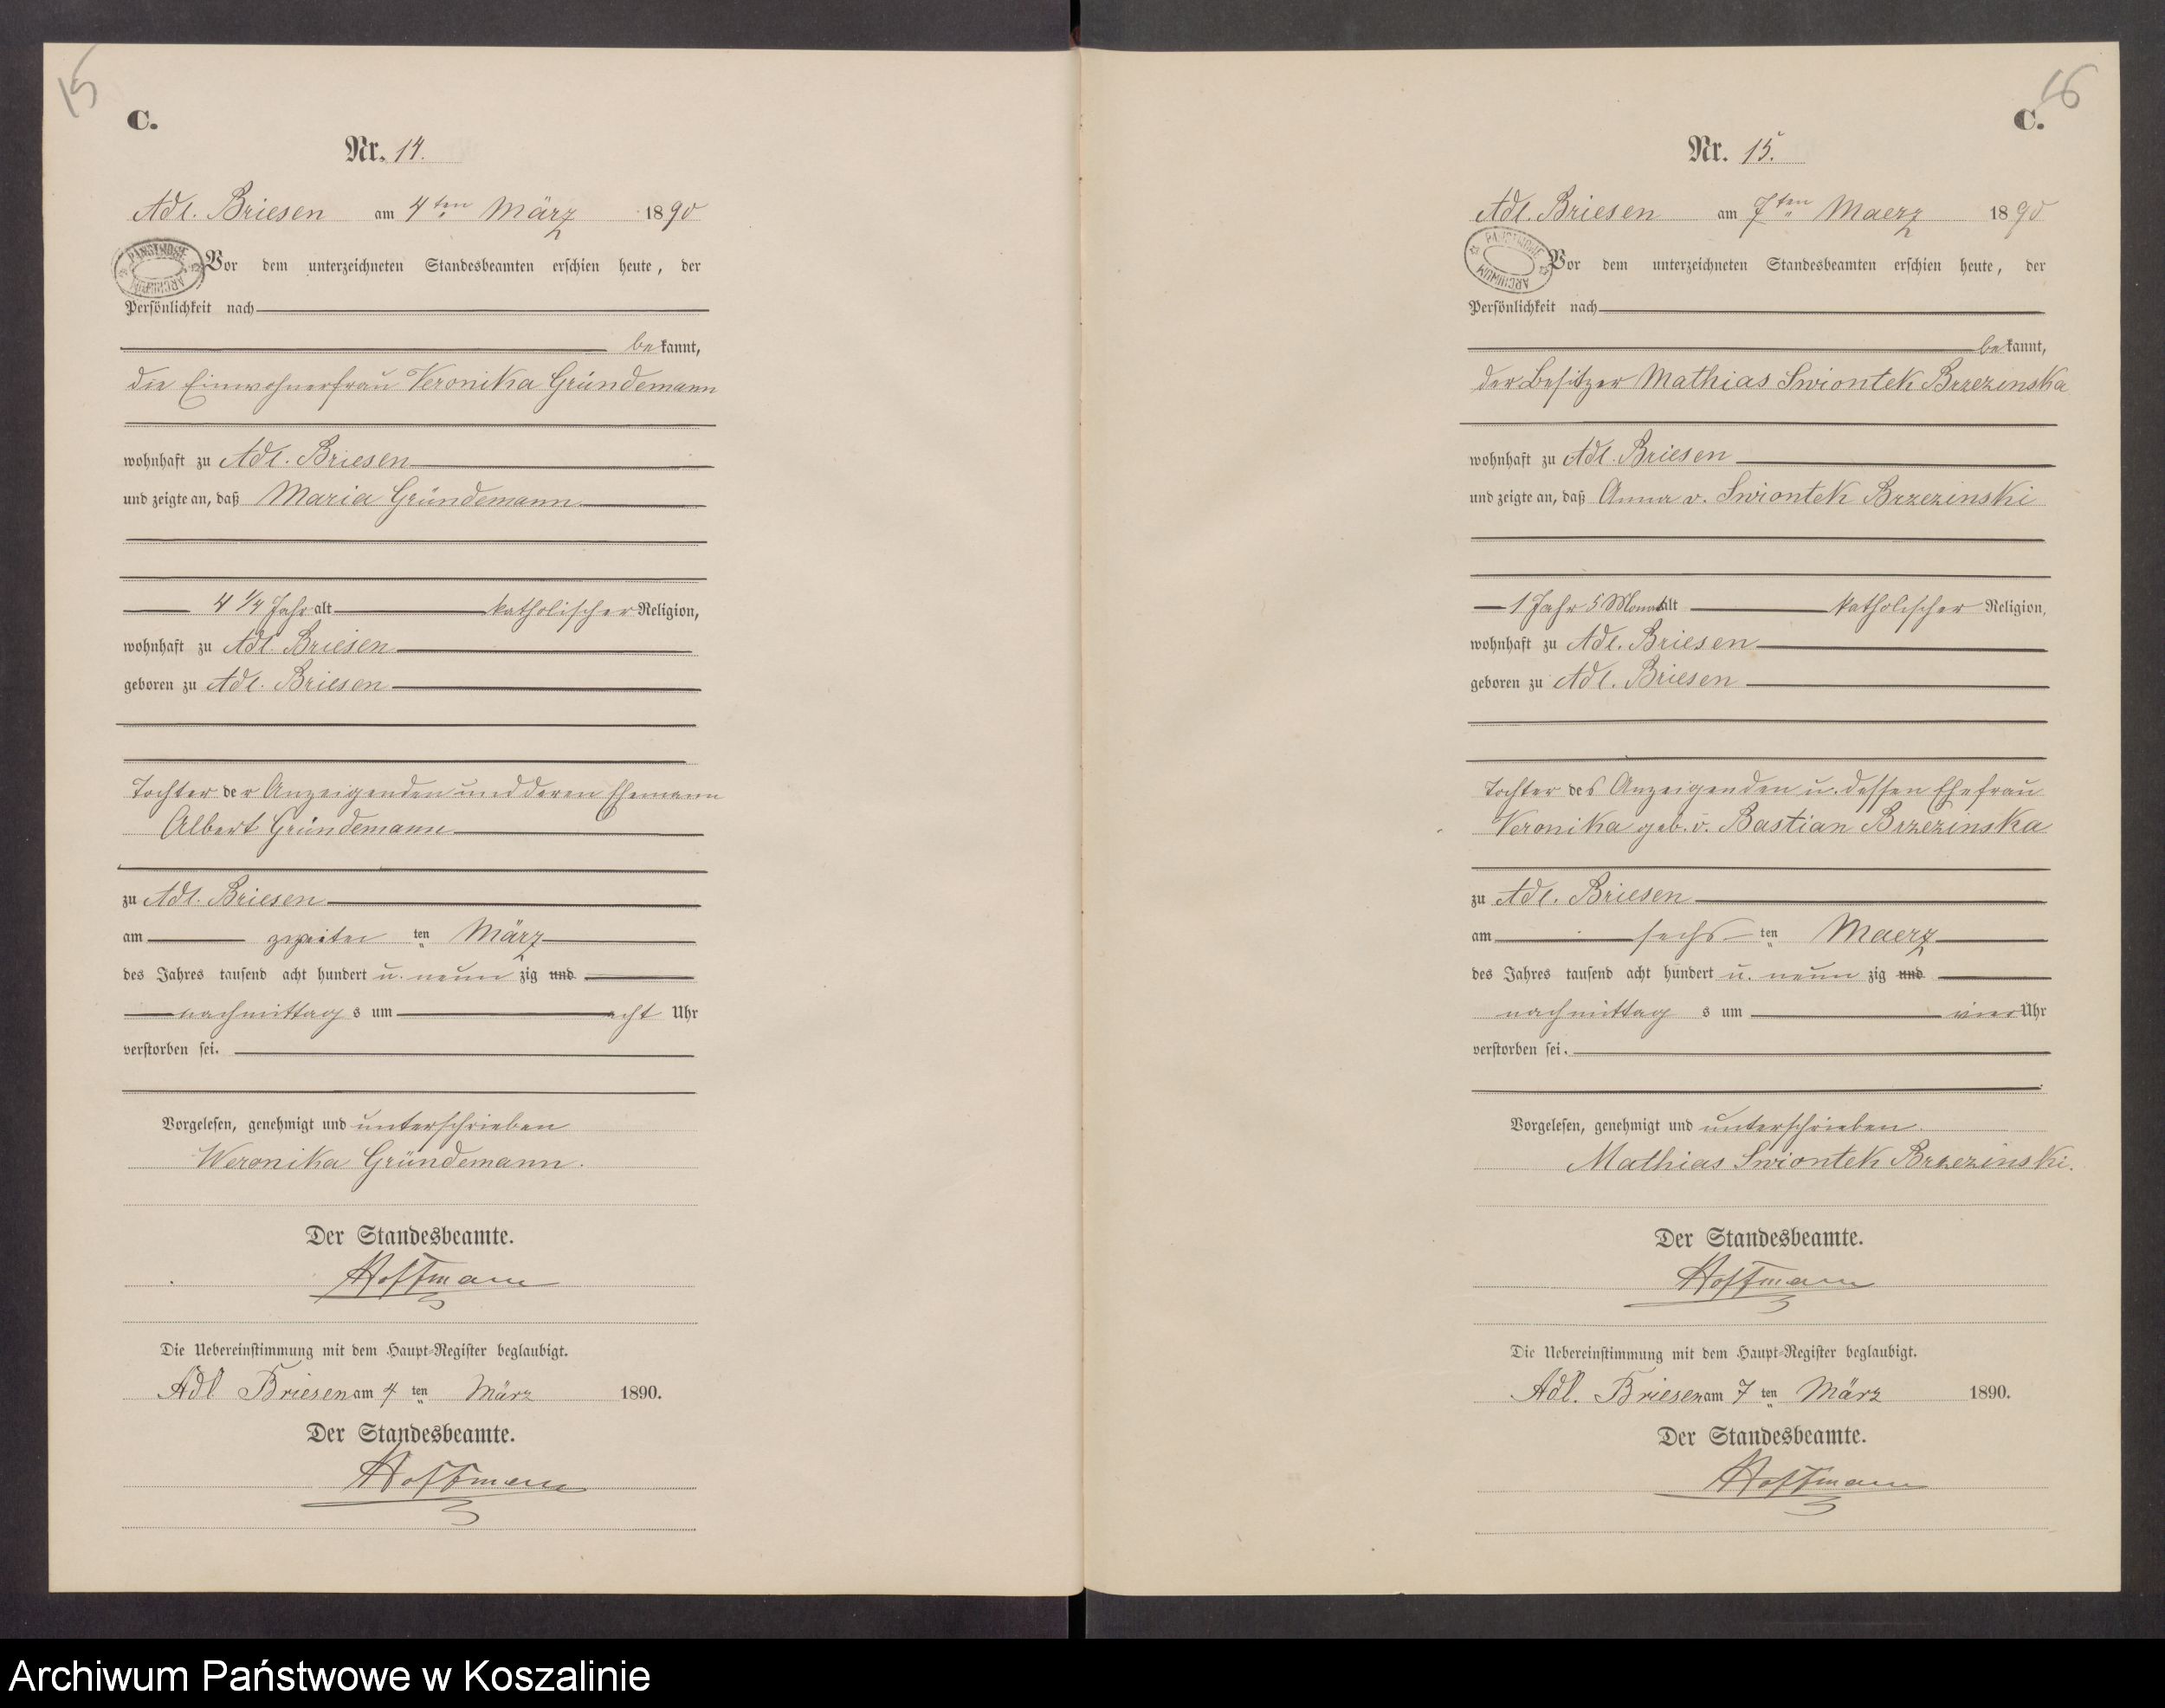 15
C.
Nr. 14.
Adl. Briesen am 4ten März 1890
PAŃSTWOWE ARCHIWUM
Vor dem unterzeichneten Standesbeamten erschien heute, der
Persönlichkeit nach
bekannt,
die Einwohnerfrau Veronika Gründemann
wohnhaft zu Adl. Briesen
und zeigte an, daß Maria Gründemann
4 1/4 Jahr alt katholischer Religion,
wohnhaft zu Adl. Briesen
geboren zu Adl. Briesen
Tochter der Anzeigenden und deren Ehemann
Albert Gründemann
zu Adl. Briesen
am zweiten ten März
des Jahres tausend acht hundert u. neun zig und
nachmittag s um acht Uhr
verstorben sei.
Vorgelesen, genehmigt und unterschrieben
Weronika Gründemann.
Der Standesbeamte.
Hoffmann
Die Uebereinstimmung mit dem Haupt-Register beglaubigt.
Adl Briesen am 4 ten März 1890.
Der Standesbeamte.
Hoffmann
16
C.
Nr. 15.
Adl. Briesen am 7ten Maerz 1890
PAŃSTWOWE ARCHIWUM
Vor dem unterzeichneten Standesbeamten erschien heute, der
Persönlichkeit nach
bekannt,
der Besitzer Mathias Swiontek Brzezinska
wohnhaft zu Adl. Briesen
und zeigte an, daß Anna v. Swiontek Brzezinski
1 Jahr 5 Monat alt katholischer Religion,
wohnhaft zu Adl. Briesen
geboren zu Adl. Briesen
Tochter des Anzeigenden u. dessen Ehefrau
Veronika geb. v. Bastian Brzezinska
zu Adl. Briesen
am sechs ten Maerz
des Jahres tausend acht hundert u. neun zig und
nachmittag s um vier Uhr
verstorben sei.
Vorgelesen, genehmigt und unterschrieben.
Mathias Swiontek Brzezinski.
Der Standesbeamte.
Hoffmann
Die Uebereinstimmung mit dem Haupt-Register beglaubigt.
Adl. Briesen am 7 ten März 1890.
Der Standesbeamte.
Hoffmann
Archiwum Państwowe w Koszalinie